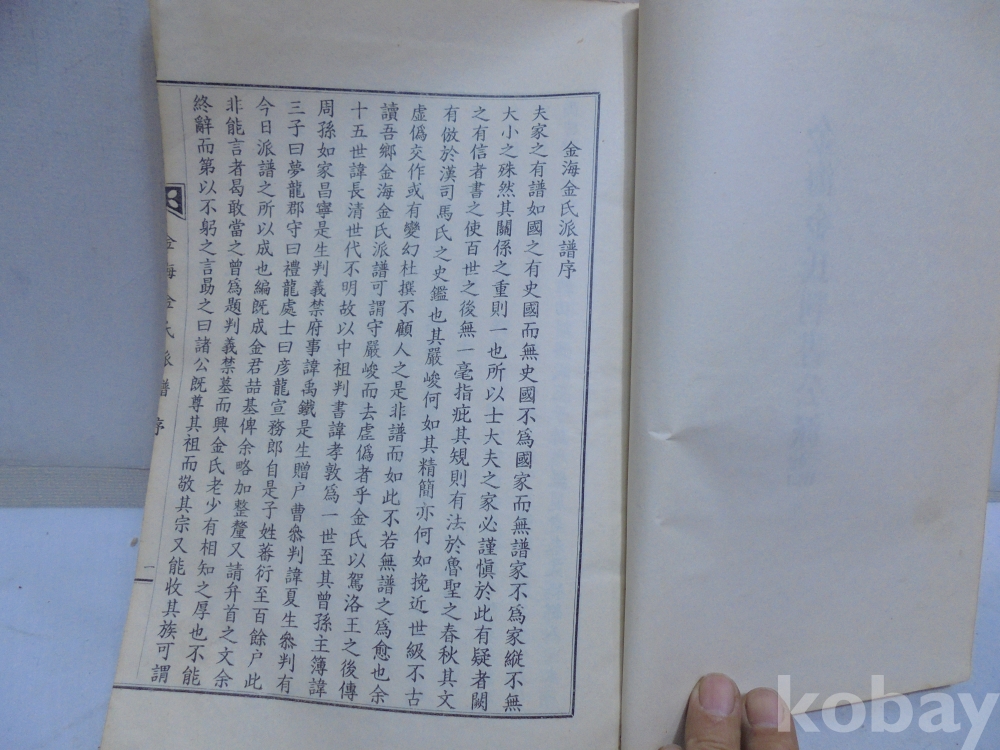 金海金氏派譜序
夫家之有譜如國之有史國而無史國不爲國家而無譜家不爲家縱不無
大小之殊然其關係之重則一也所以士大夫之家必謹愼於此有疑者闕
之有信者書之使百世之後無一毫指疵其規則有法於魯聖之春秋其文
有倣於漢司馬氏之史鑑也其嚴峻何如其精簡亦何如挽近世級不古
虛僞交作或有變幻杜撰不顧人之是非譜而如此不若無譜之爲愈也余
讀吾鄉金海金氏派譜可謂守嚴峻而去虛僞者乎金氏以駕洛王之後傳
十五世諱長淸世代不明故以中祖判書諱孝敦爲一世至其曾孫主簿諱
周孫如家昌寧是生判義禁府事諱禹鐵是生贈户曹叅判諱夏生叅判有
三子曰夢龍郡守曰禮龍處士曰彦龍宣務郎自是子姓蕃衍至百餘户此
今日派譜之所以成也編旣成金君喆基俾余略加整釐又請弁首之文余
非能言者曷敢當之曾爲題判義禁墓而興金氏老少有相知之厚也不能
終辭而第以不躬之言勗之曰諸公旣尊其祖而敬其宗又能收其族可謂
金海金氏派譜 序
一
kobay